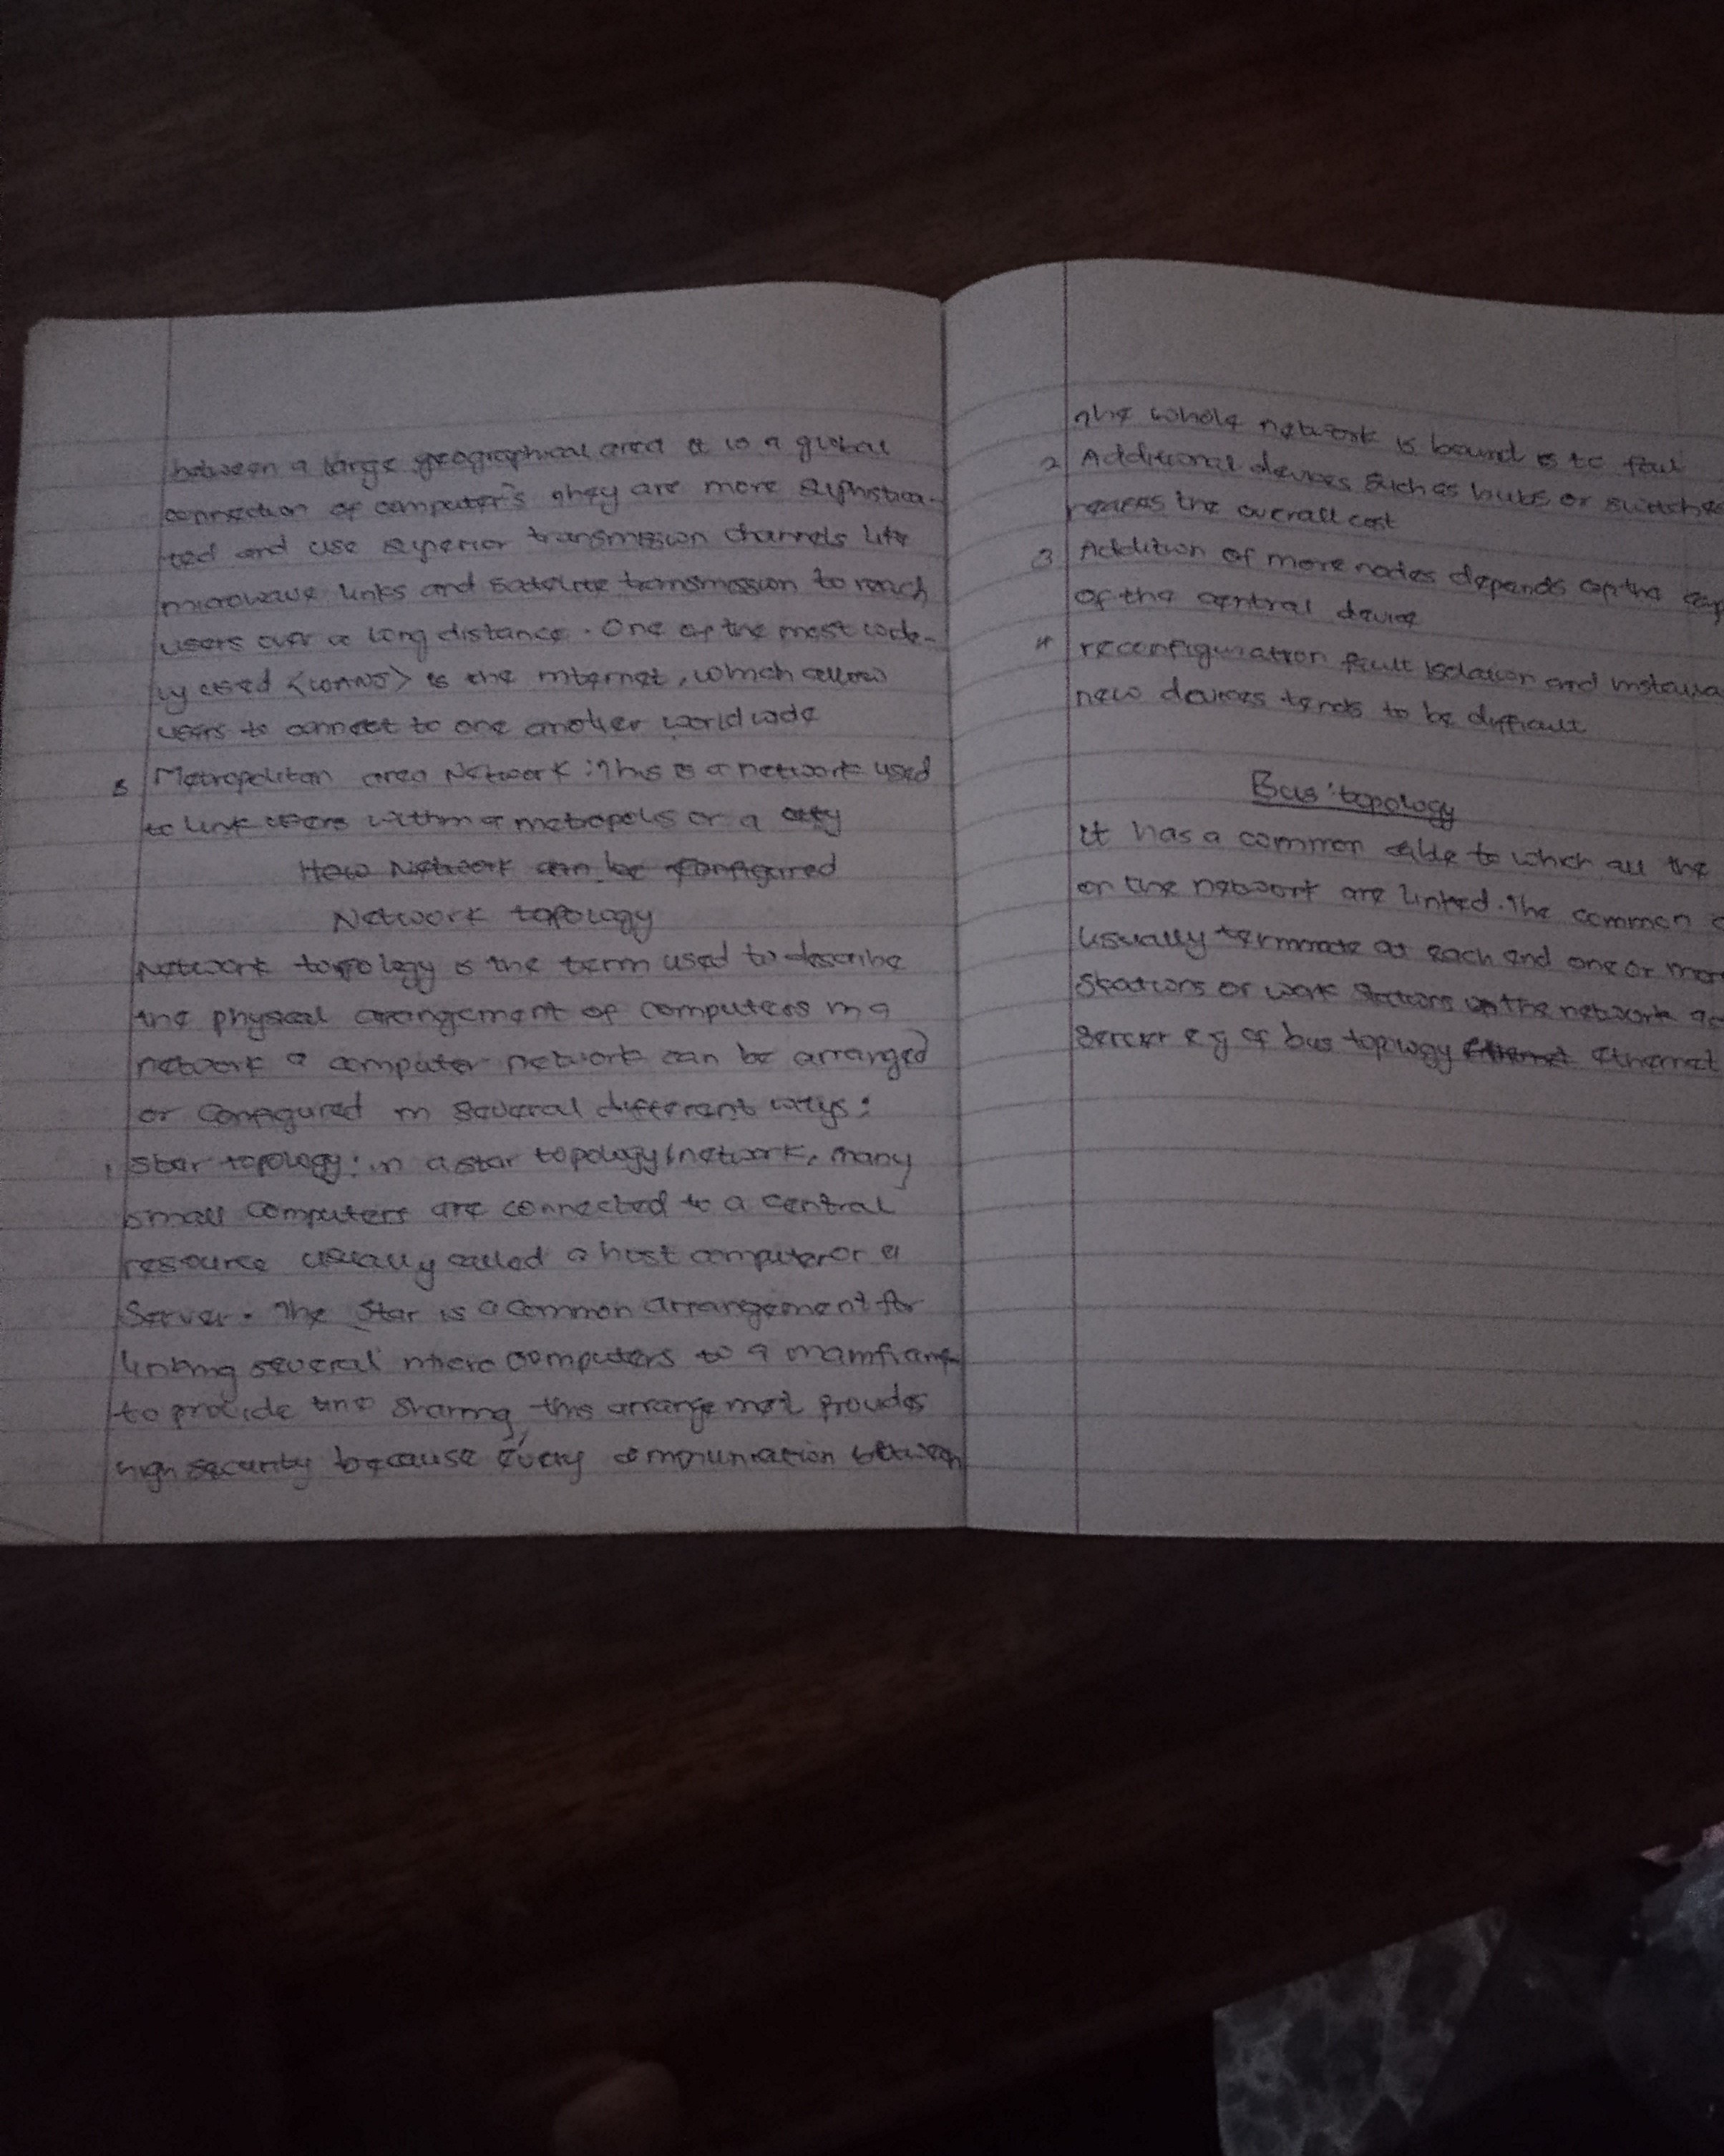 between a large geographical area it is a global
connection of computer's they are more sophistica-
ted and use superior transmission channels like
microwave links and satelite transmission to reach
users over a long distance. One of the most wide-
ly used <WANS> is the internet, which allow
users to connect to one another world wide
3 Metropolitan area Network: This is a network used
to link users within a metropolis or a city
How Network can be configured
Network topology
Network topology is the term used to describe
the physical arrangement of computers in a
network a computer network can be arranged
or configured in several different ways:
1 Star topology: in a star topology/network, many
small computers are connected to a central
resource usually called a host computer or a
Server. The Star is a common arrangement for
linking several micro computers to a mainframe
to provide time sharing, this arrangement provides
high security because every communication between
the whole network is bound to fail
2 Additional devices such as hubs or switches
the overall cost
3 Addition of more nodes depends on the
of the central device
4 reconfiguration fault isolation and
new devices tends to be difficult
Bus topology
it has a common cable to which all the
on the network are linked. The common
usually terminate at each end one or more
Stations or work stations on the network
Server e.g of bus topology Ethernet Ethernet